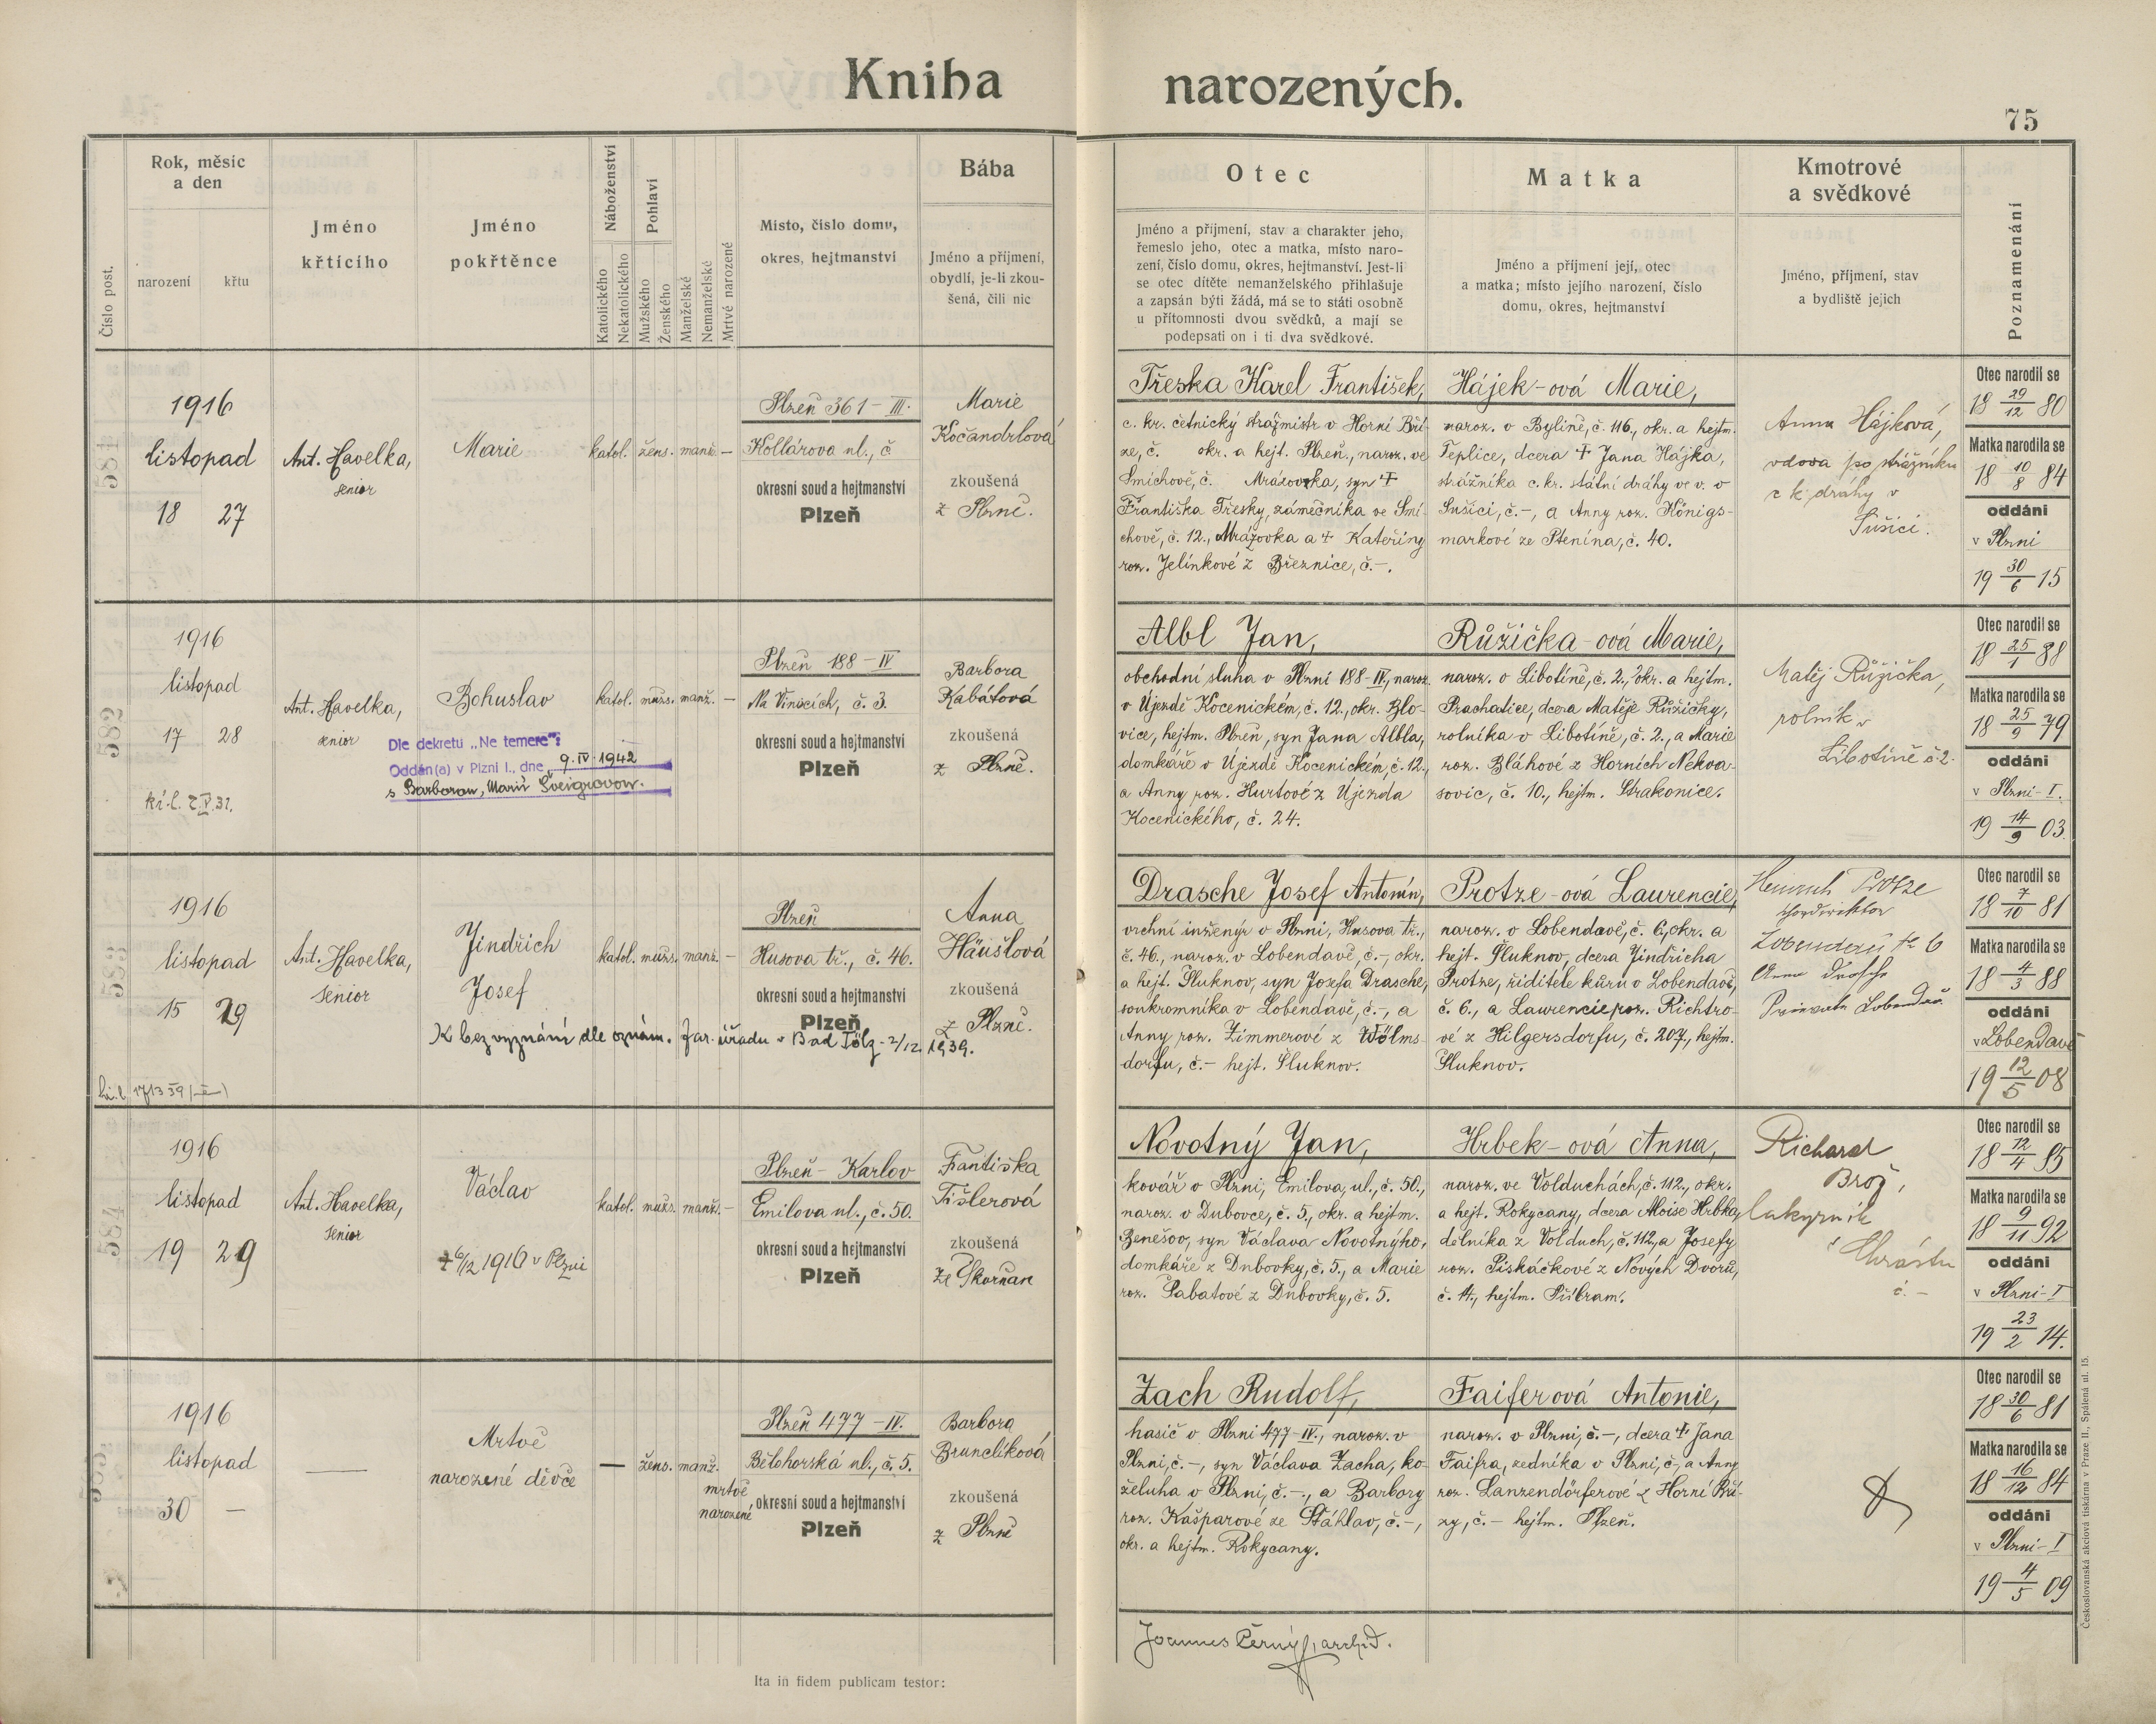 Kniha narozených.
75
Číslo post.
Rok, měsíc
a den
narození
křtu
Jméno
křtícího
Jméno
pokřtěnce
Náboženství
Katolického
Nekatolického
Pohlaví
Mužského
Ženského
Manželské
Nemanželské
Mrtvě narozené
Místo, číslo domu,
okres, hejtmanství
Bába
Jméno a příjmení,
obydlí, je-li zkou-
šená, čili nic
Otec
Jméno a příjmení, stav a charakter jeho,
řemeslo jeho, otec a matka, místo naro-
zení, číslo domu, okres, hejtmanství. Jest-li
se otec dítěte nemanželského přihlašuje
a zapsán býti žádá, má se to státi osobně
u přítomnosti dvou svědků, a mají se
podepsati on i ti dva svědkové.
Matka
Jméno a příjmení její, otec
a matka; místo jejího narození, číslo
domu, okres, hejtmanství
Kmotrové
a svědkové
Jméno, příjmení, stav
a bydliště jejich
Poznamenání
581
1916
listopad
18 27
Ant. Havelka,
senior
Marie
katol. žens. manž. —
Plzeň 361 - III.
Kollárova ul., č
okresní soud a hejtmanství
Plzeň
Marie
Kočandrlová
zkoušená
z Plzně.
Třeska Karel František,
c. kr. četnický strážmistr v Horní Bří-
ze, č. okr. a hejt. Plzeň, naroz. ve
Smíchově, č. Mrázovka, syn †
Františka Třesky, zámečníka ve Smí-
chově, č. 12., Mrázovka a † Kateřiny
roz. Jelínkové z Březnice, č.-.
Hájek-ová Marie,
naroz. v Bylině, č. 116., okr. a hejtm.
Teplice, dcera † Jana Hájka,
strážníka c. kr. státní dráhy ve v. v
Sušici, č.-, a Anny roz. Königs-
markové ze Ptenína, č. 40.
Anna Hájková,
vdova po strážníku
c k dráhy v
Sušici.
Otec narodil se
18 29/12 80
Matka narodila se
18 10/8 84
oddáni
v Plzni
19 30/6 15
582
1916
listopad
17 28
Ant. Havelka,
senior
Bohuslav
Dle dekretu „Ne temere":
Oddán(a) v Plzni I., dne 9. IV. 1942
s Barborou, Marií Šveigrovou.
katol. mužs. manž. —
Plzeň 188 - IV
Na Vinicích, č. 3.
okresní soud a hejtmanství
Plzeň
Barbora
Kabátová
zkoušená
z Plzně.
Albl Jan,
obchodní sluha v Plzni 188-IV, naroz.
v Újezdě Kocenickém, č. 12., okr. Blo-
vice, hejtm. Plzeň, syn Jana Albla,
domkáře v Újezdě Kocenickém, č. 12.,
a Anny roz. Hurtové z Újezda
Kocenického, č. 24.
Růžička-ová Marie,
naroz. v Libotíně, č. 2., okr. a hejtm.
Prachatice, dcera Matěje Růžičky,
rolníka v Libotíně, č. 2., a Marie
roz. Bláhové z Horních Nekva-
sovic, č. 10., hejtm. Strakonice.
Matěj Růžička,
rolník v
Libotíně č 2.
Otec narodil se
18 25/1 88
Matka narodila se
18 25/9 79
oddáni
v Plzni-I.
19 14/9 03.
583
1916
listopad
15 29
Ant. Havelka,
senior
Jindřich
Josef
katol. mužs. manž. —
Plzeň
Husova tř., č. 46.
okresní soud a hejtmanství
Plzeň
Anna
Häuslová
zkoušená
z Plzně.
K bez vyznání dle oznám. far. úřadu v Bad Tölz - 2/12. 1939.
Drasche Josef Antonín,
vrchní inženýr v Plzni, Husova tř.,
č. 46., naroz. v Lobendavě, č.-, okr.
a hejt. Šluknov, syn Josefa Drasche,
soukromníka v Lobendavě, č.-, a
Anny roz. Zimmerové z Wölms-
dorfu, č.- hejt. Šluknov.
Protze-ová Laurencie,
naroz. v Lobendavě, č. 6, okr. a
hejt. Šluknov, dcera Jindřicha
Protze, řiditele kůru v Lobendavě,
č. 6., a Laurencie roz. Richtro-
vé z Hilgersdorfu, č. 207., hejtm.
Šluknov.
Heinrich Protze
Chordirektor
Lobendau No 6
Anna Drasche
Private Lobendau
Otec narodil se
18 7/10 81
Matka narodila se
18 4/3 88
oddáni
v Lobendavě
19 12/5 08
584
1916
listopad
19 29
Ant. Havelka,
senior
Václav
† 6/12 1916 v Plzni
katol. mužs. manž. —
Plzeň - Karlov
Emilova ul., č. 50.
okresní soud a hejtmanství
Plzeň
Frantiska
Tišlerová
zkoušená
ze Skvrňan
Novotný Jan,
kovář v Plzni, Emilova ul., č. 50.,
naroz. v Dubovce, č. 5., okr. a hejtm.
Benešov, syn Václava Novotnýho,
domkáře z Dubovky, č. 5., a Marie
roz. Šabatové z Dubovky, č. 5.
Hrbek-ová Anna,
naroz. ve Volduchách, č. 112., okr.
a hejt. Rokycany, dcera Aloise Hrbka,
dělníka z Volduch, č. 112, a Josefy
roz. Piskáčkové z Nových Dvorů,
č. 4., hejtm. Příbram.
Richard
Brož,
lakyrník
z Chrástu
č. -
Otec narodil se
18 12/4 85
Matka narodila se
18 9/11 92
oddáni
v Plzni-I
19 23/2 14.
1916
listopad
30 —
—
Mrtvě
narozené děvče
— žens. manž.
mrtvě
narozené
Plzeň 477 - IV.
Bělohorská ul., č. 5.
okresní soud a hejtmanství
Plzeň
Barbora
Brunclíková
zkoušená
z Plzně
Zach Rudolf,
hasič v Plzni 477-IV., naroz. v
Plzni, č.-, syn Václava Zacha, ko-
želuha v Plzni, č.-., a Barbory
roz. Kašparové ze Šťáhlav, č.-,
okr. a hejtm. Rokycany.
Faiferová Antonie,
naroz. v Plzni, č.-, dcera † Jana
Faifra, zedníka v Plzni, č.-, a Anny
roz. Lanzendörferové z Horní Bří-
zy, č.- hejtm. Plzeň.
Otec narodil se
18 30/6 81
Matka narodila se
18 16/12 84
oddáni
v Plzni-I
19 4/5 09
Ita in fidem publicam testor:
Joannes Černý, archid.
Českoslovanská akciová tiskárna v Praze II., Spálená ul. 15.